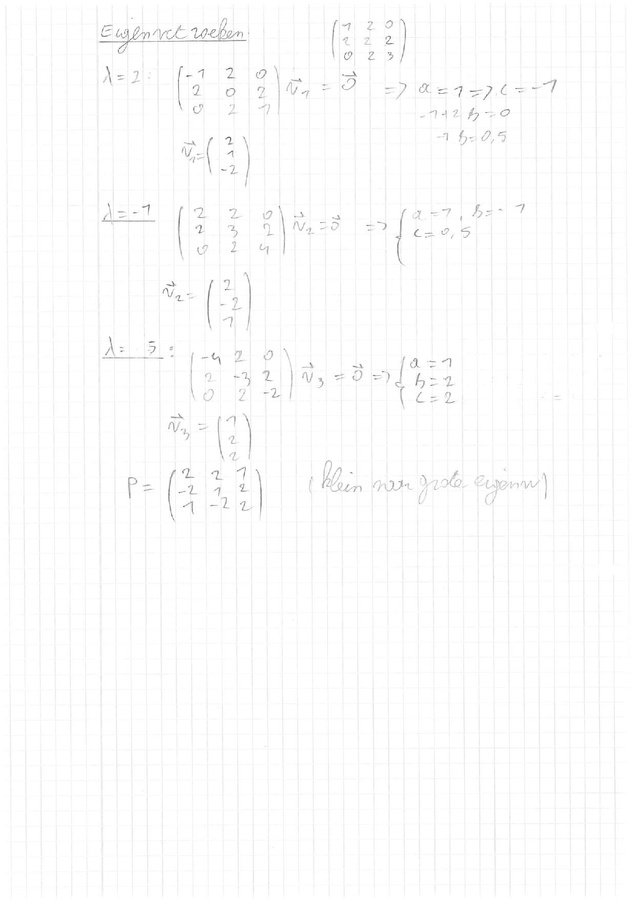 Eigenvect zoeken. (1 2 0; 2 2 2; 0 2 3)
λ=2: (-1 2 0; 2 0 2; 0 2 1) v⃗₁ = 0⃗ => a=1 => c=-1
-1+2b=0
b=0,5
v⃗₁ = (2; 1; -2)
λ=-1 (2 2 0; 2 3 2; 0 2 4) v⃗₂=0⃗ => { a=1, b=-1
c=0,5
v⃗₂ = (2; -2; 1)
λ= 5: (-4 2 0; 2 -3 2; 0 2 -2) v⃗₃ = 0⃗ => { a=1
b=2
c=2
v⃗₃ = (1; 2; 2)
P = (2 2 1; -2 1 2; 1 -2 2) (klein naar grote eigenw)